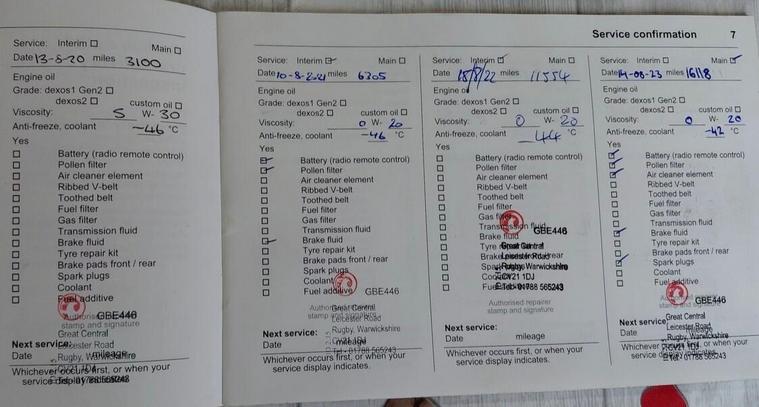 Service: Interim Main
Date 13-8-20 miles 3100
Engine oil
Grade: dexos1 Gen2
dexos2 custom oil
Viscosity: 5 W- 30
Anti-freeze, coolant -46 °C
Yes
Battery (radio remote control)
Pollen filter
Air cleaner element
Ribbed V-belt
Toothed belt
Fuel filter
Gas filter
Transmission fluid
Brake fluid
Tyre repair kit
Brake pads front / rear
Spark plugs
Coolant
Fuel additive
GBE446
stamp and signature
Great Central
Leicester Road
Next service:
Rugby, Warwickshire
Date mileage
CV21 1DJ
Whichever occurs first, or when your
service display indicates.
Tel: 01788 565243
Service confirmation 7
Service: Interim Main
Date 10-8-2021 miles 6305
Engine oil
Grade: dexos1 Gen2
dexos2 custom oil
Viscosity: 0 W- 20
Anti-freeze, coolant -46 °C
Yes
Battery (radio remote control)
Pollen filter
Air cleaner element
Ribbed V-belt
Toothed belt
Fuel filter
Gas filter
Transmission fluid
Brake fluid
Tyre repair kit
Brake pads front / rear
Spark plugs
Coolant
Fuel additive GBE446
stamp and signature
Great Central
Leicester Road
Next service: Rugby, Warwickshire
Date mileage
CV21 1DJ
Tel: 01788 565243
Whichever occurs first, or when your
service display indicates.
Service: Interim Main
Date 18/8/22 miles 11554
Engine oil
Grade: dexos1 Gen2
dexos2 custom oil
Viscosity: 0 W- 20
Anti-freeze, coolant -44 °C
Yes
Battery (radio remote control)
Pollen filter
Air cleaner element
Ribbed V-belt
Toothed belt
Fuel filter
Gas filter
Transmission fluid
Brake fluid GBE446
Tyre repair kit
Great Central
Brake pads front / rear
Leicester Road
Spark plugs
Rugby, Warwickshire
Coolant
CV21 1DJ
Fuel additive
Tel: 01788 565243
Authorised repairer
stamp and signature
Next service:
Date mileage
Whichever occurs first, or when your
service display indicates.
Service: Interim Main
Date 14-08-23 miles 16118
Engine oil
Grade: dexos1 Gen2
dexos2 custom oil
Viscosity: 0 W- 20
Anti-freeze, coolant -42 °C
Yes
Battery (radio remote control)
Pollen filter
Air cleaner element
Ribbed V-belt
Toothed belt
Fuel filter
Gas filter
Transmission fluid
Brake fluid
Tyre repair kit
Brake pads front / rear
Spark plugs
Coolant
Fuel additive
GBE446
stamp and signature
Great Central
Leicester Road
Next service: Rugby, Warwickshire
Date mileage
CV21 1DJ
Whichever occurs first, or when your
Tel: 01788 565243
service display indicates.